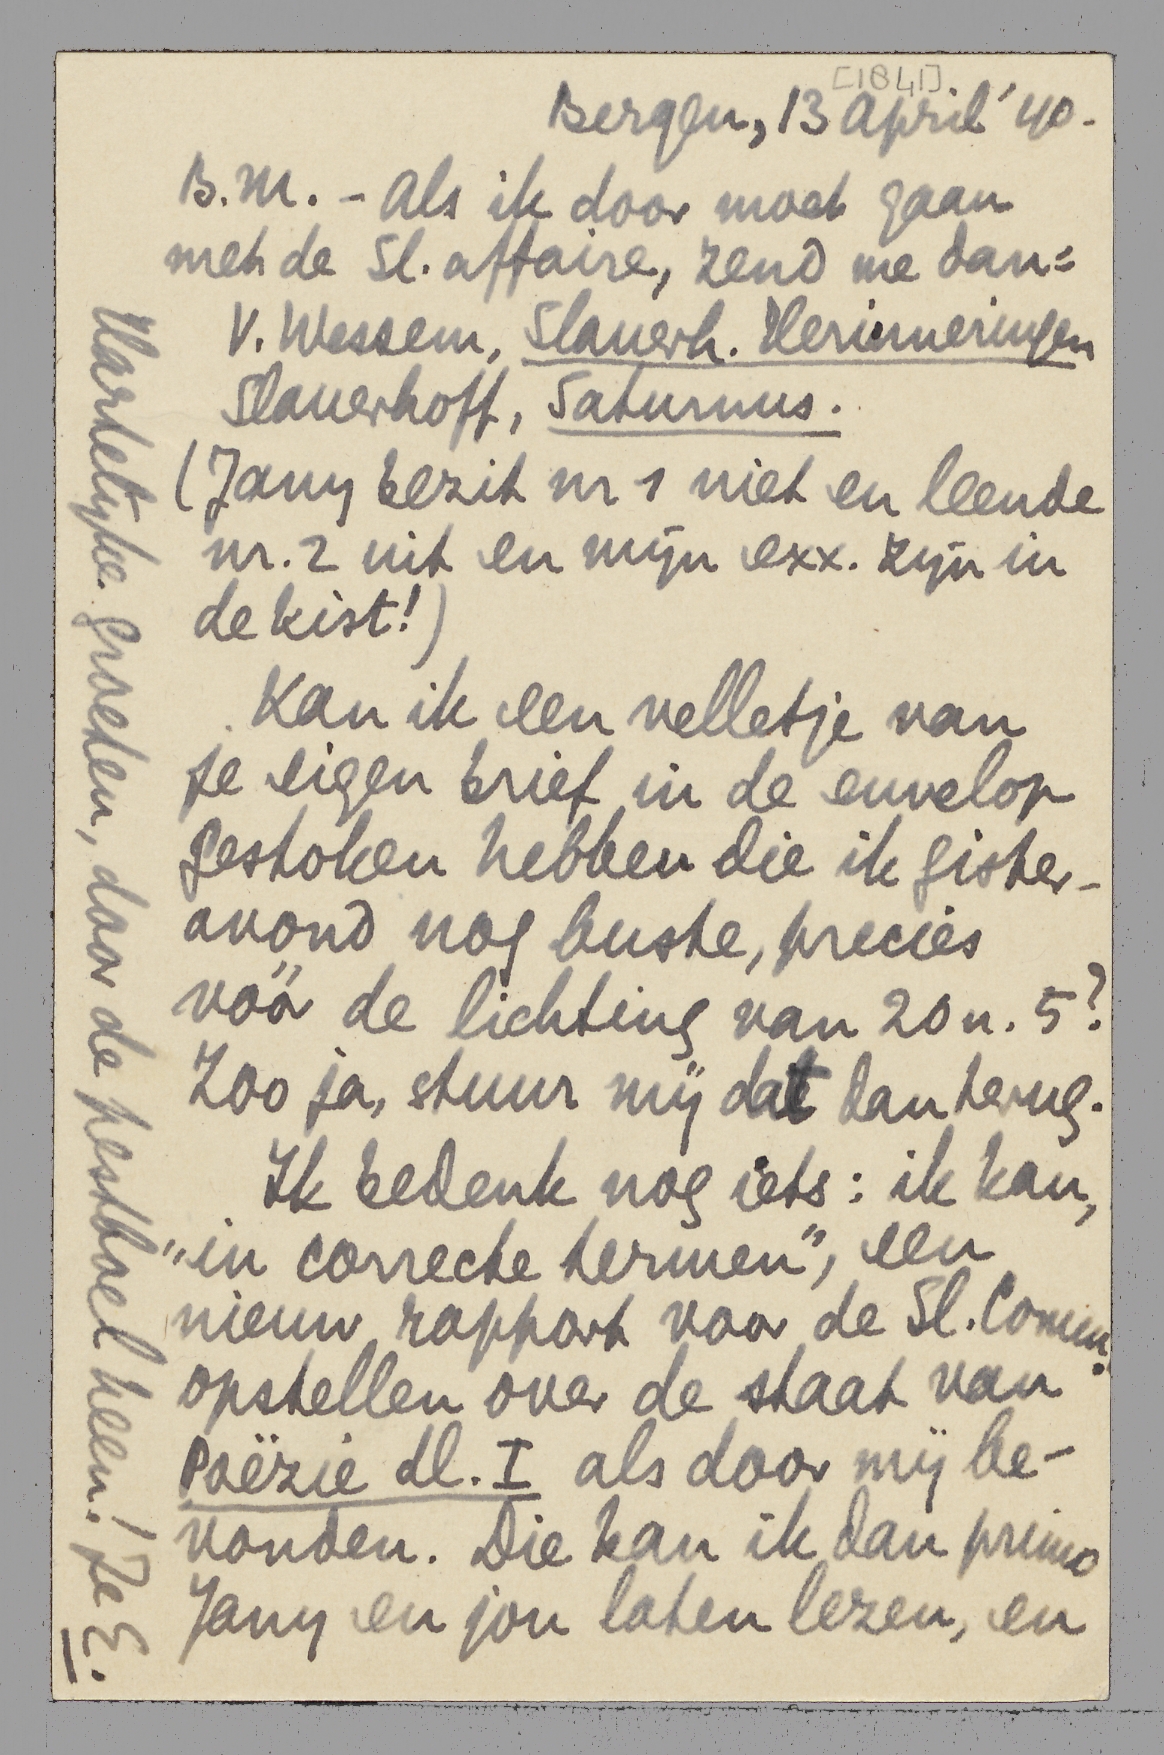 [1841]
Bergen, 13 April '40.
B.M. - Als ik door moet gaan
met de Sl. affaire, zend me dan:
V. Wessem, Slauerh. Herinneringen
Slauerhoff, Saturnus.
(Jany bezit nr 1 niet en leende
nr. 2 uit en mijn exx. zijn in
de kist!)
Kan ik een velletje van
je eigen brief in de envelop
gestoken hebben die ik gister-
avond nog buste, precies
vóór de lichting van 20 u. 5?
Zoo ja, stuur mij dat dan terug.
Ik bedenk nog iets: ik kan,
"in correcte termen", een
nieuw rapport voor de Sl. Comm.
opstellen over de staat van
Poëzie dl. I als door mij be-
vonden. Die kan ik dan primo
Jany en jou laten lezen, en
Hartelijke groeten, door de pestboel heen! Je E.